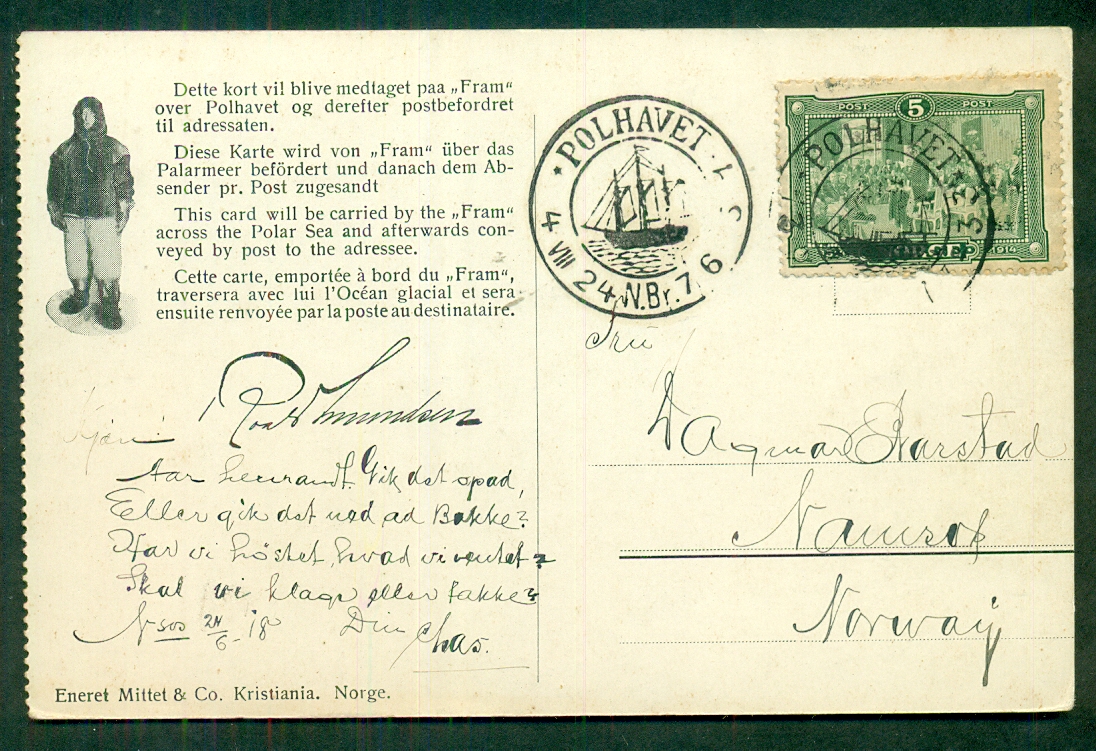 Dette kort vil blive medtaget paa „Fram“
over Polhavet og derefter postbefordret
til adressaten.
Diese Karte wird von „Fram“ über das
Palarmeer befördert und danach dem Ab-
sender pr. Post zugesandt
This card will be carried by the „Fram“
across the Polar Sea and afterwards con-
veyed by post to the adressee.
Cette carte, emportée à bord du „Fram“,
traversera avec lui l'Océan glacial et sera
ensuite renvoyée par la poste au destinataire.
POLHAVET
4 VIII 24 N.Br. 76
POST 5 POST
POLHAVET
1914
Roald Amundsen
Aar henrandt. Gik det opad,
Eller gik det ned ad Bakke?
Har vi høstet, hvad vi ventet?
Skal vi klage eller takke?
N-sos 24/6-18 Din Chas.
Fru
Dagmar Aarstad
Namsos
Norway
Eneret Mittet & Co. Kristiania. Norge.